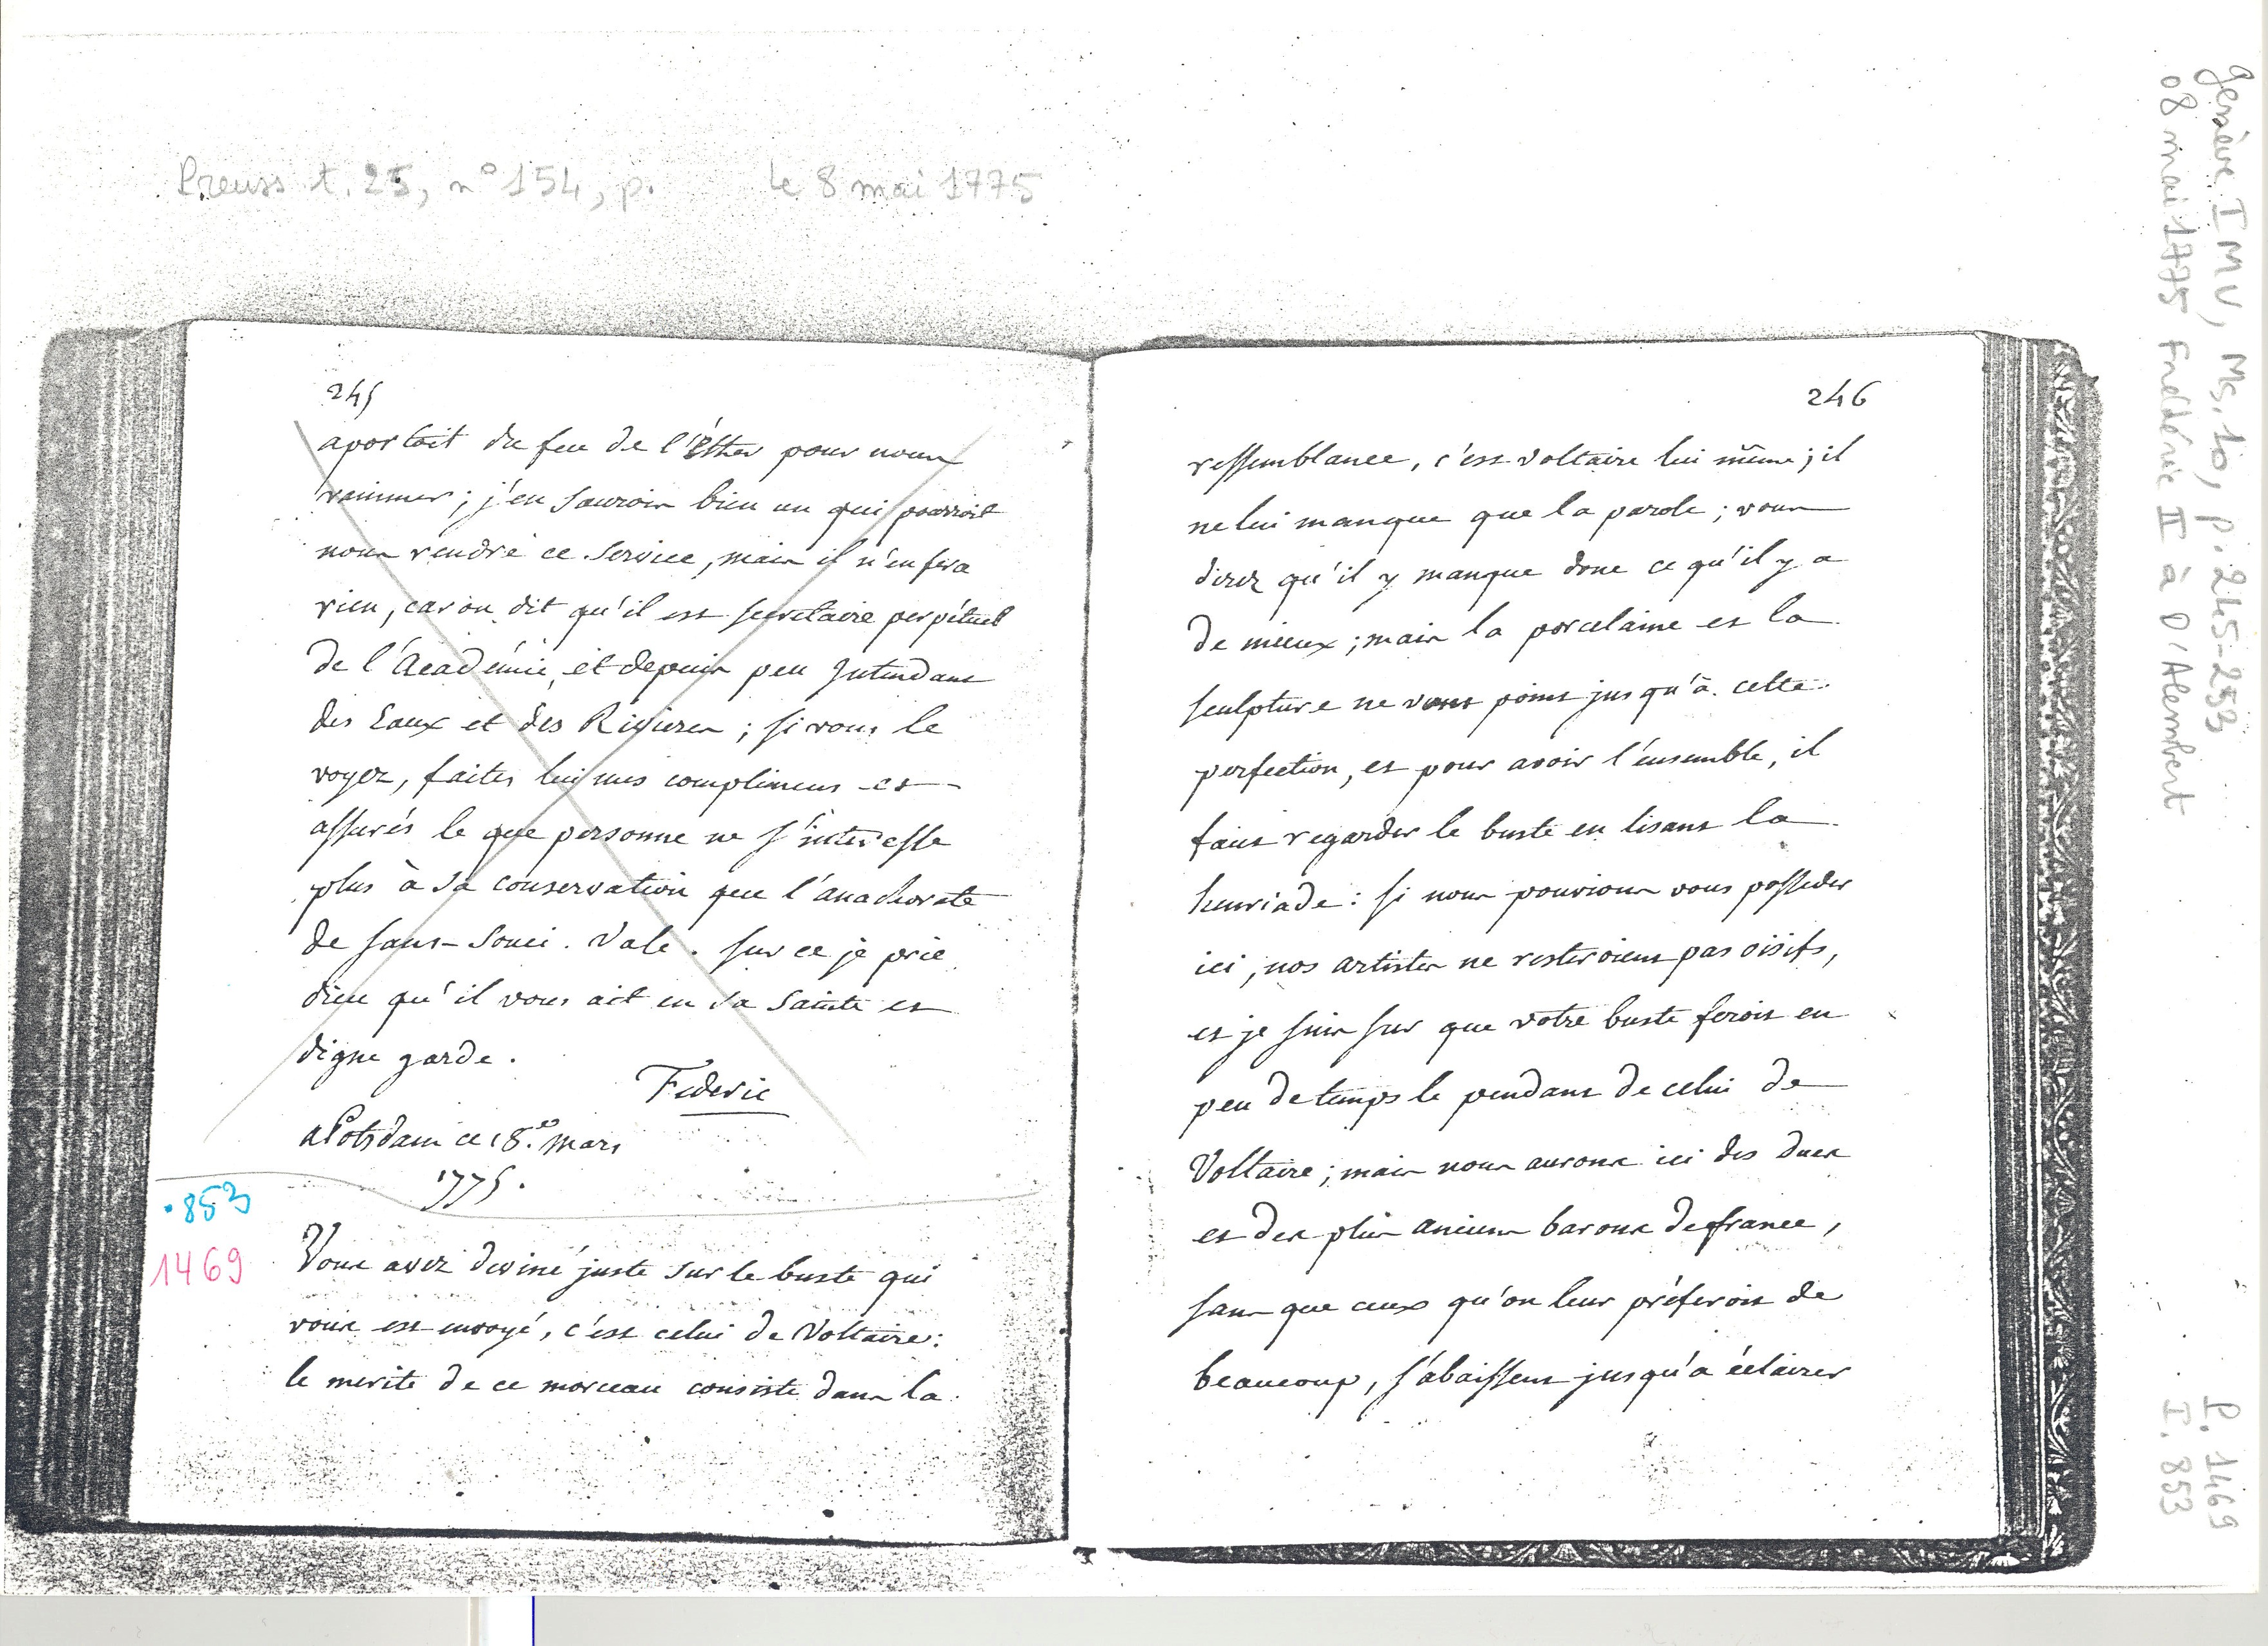 Preuss t. 25, n° 154, p. le 8 mai 1775
245
aportait du feu de l'Éther pour nous
ranimer; j'en saurois bien un qui pourroit
nous rendre ce service, mais il n'en fera
rien, car on dit qu'il est secretaire perpétuel
de l'Académie, et depuis peu Intendant
des Eaux et des Rivieres; si vous le
voyez, faites lui mes complimens et
assurés le que personne ne s'interesse
plus à sa conservation que l'anachorete
de sans-Souci. Vale. sur ce je prie
dieu qu'il vous ait en sa sainte et
digne garde.
Federic
a Potsdam ce 18.e mars
1775.
.853
1469
Vous avez deviné juste sur le buste qui
vous est envoyé, c'est celui de Voltaire:
le merite de ce morceau consiste dans la
246
ressemblance, c'est voltaire lui même; il
ne lui manque que la parole; vous
direz qu'il y manque donc ce qu'il y a
de mieux; mais la porcelaine et la
sculpture ne vont point jusqu'à cette
perfection, et pour avoir l'ensemble, il
faut regarder le buste en lisant la
henriade: si nous pouvions vous posseder
ici, nos artistes ne resteroient pas oisifs,
et je suis sur que votre buste feroit en
peu de temps le pendant de celui de
Voltaire; mais nous aurons ici des ducs
et des plus anciens barons de france,
sans que ceux qu'on leur préferoit de
beaucoup, s'abaissent jusqu'a éclairer
Genève IMV, Ms. 10, p. 245-253
08 mai 1775 Frédéric II à D'Alembert
P. 1469
I. 853